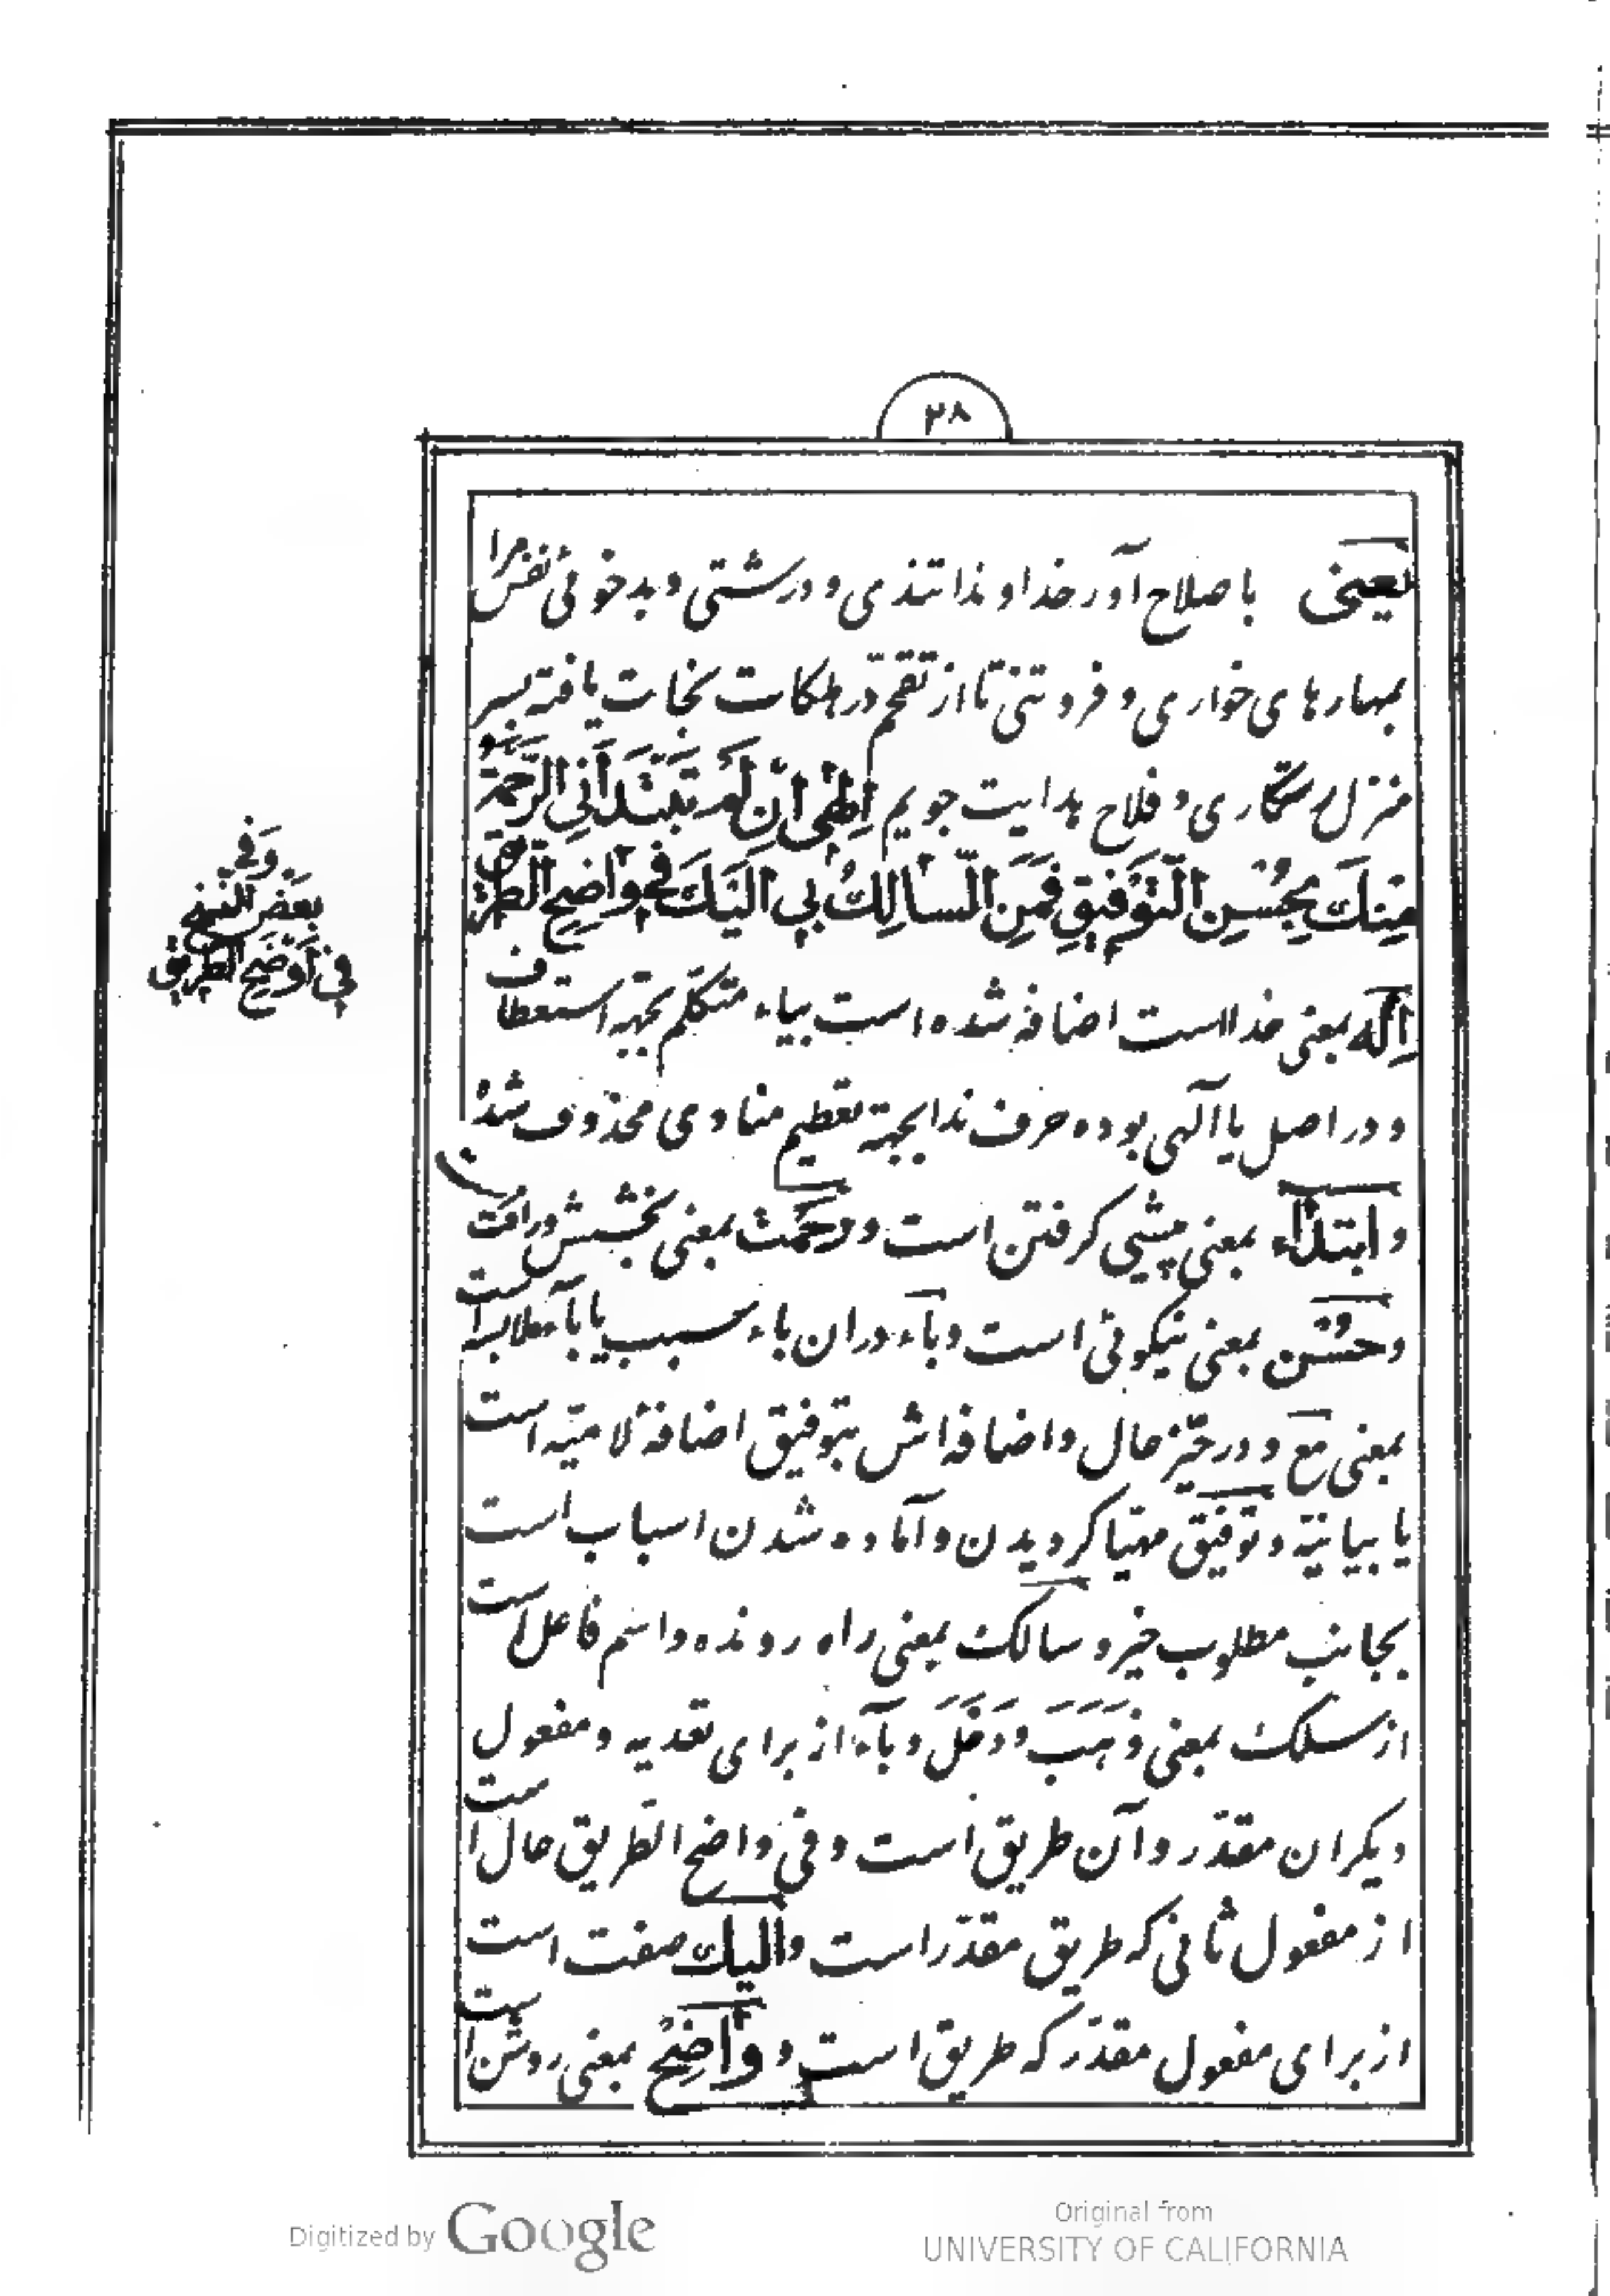 ۲۸
یعنی باصلاح آور خداوندا تندی و درشتی و بدخوئی نفس مرا
بمهارهای خواری و فروتنی تا از تقحّم در هلکات نجات یافته بسر
منزل رستگاری و فلاح هدایت جویم اِلٰهی اِنْ لَمْ تَبْتَدِأْنِی الرَّحْمَةُ
مِنْكَ بِحُسْنِ التَّوْفِيقِ فَمَنِ السّالِكُ بي اِلَيْكَ في واضِحِ الطَّريقِ
اِلٰه بمعنی خداست اضافه شده است بیاء متکلم بجهة استعطاف
و در اصل یا آلهی بوده حرف ندا بجهة تعظیم منادی محذوف شده
و ابتداء بمعنی پیشی گرفتن است و رحمت بمعنی بخشش و رافت است
و حُسْن بمعنی نیکوئی است و بآء در ان باء سبب یا بآء ملابسه
بمعنی مع و در حیّز حال و اضافه اش بتوفیق اضافهٔ لامیّه است
یا بیانیّه و توفیق مهیّا کردیدن و آماده شدن اسباب است
بجانب مطلوب خیر و سالک بمعنی راه رونده و اسم فاعل است
از سلک بمعنی ذَهَبَ وَ دَخَلَ و بآء از برای تعدیه و مفعول
دیکر ان مقدّر و آن طریق است و فی واضح الطّریق حال است
از مفعول ثانی که طریق مقدّر است و الیک صفت است
از برای مفعول مقدّر که طریق است و وٰاضِحْ بمعنی روشن است
وَ في
بَعْضِ النُّسَخِ
في اَوْضَحِ الطَّريقِ
Digitized by Google
Original from
UNIVERSITY OF CALIFORNIA